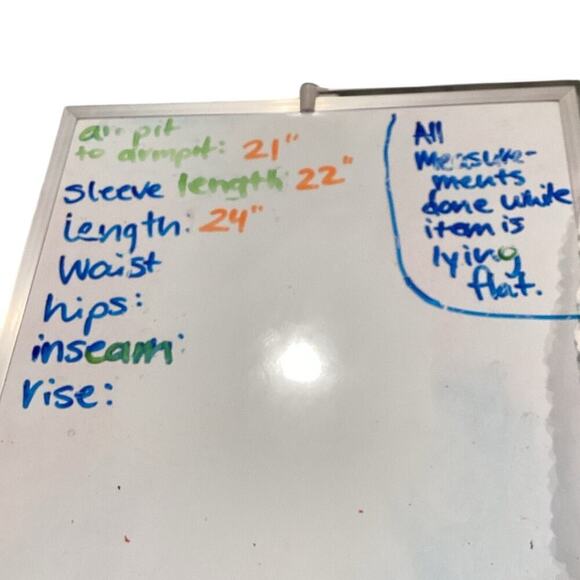 armpit
to armpit: 21"
sleeve length: 22"
length: 24"
Waist
hips:
inseam:
rise:
All
measure-
ments
done while
item is
lying
flat.